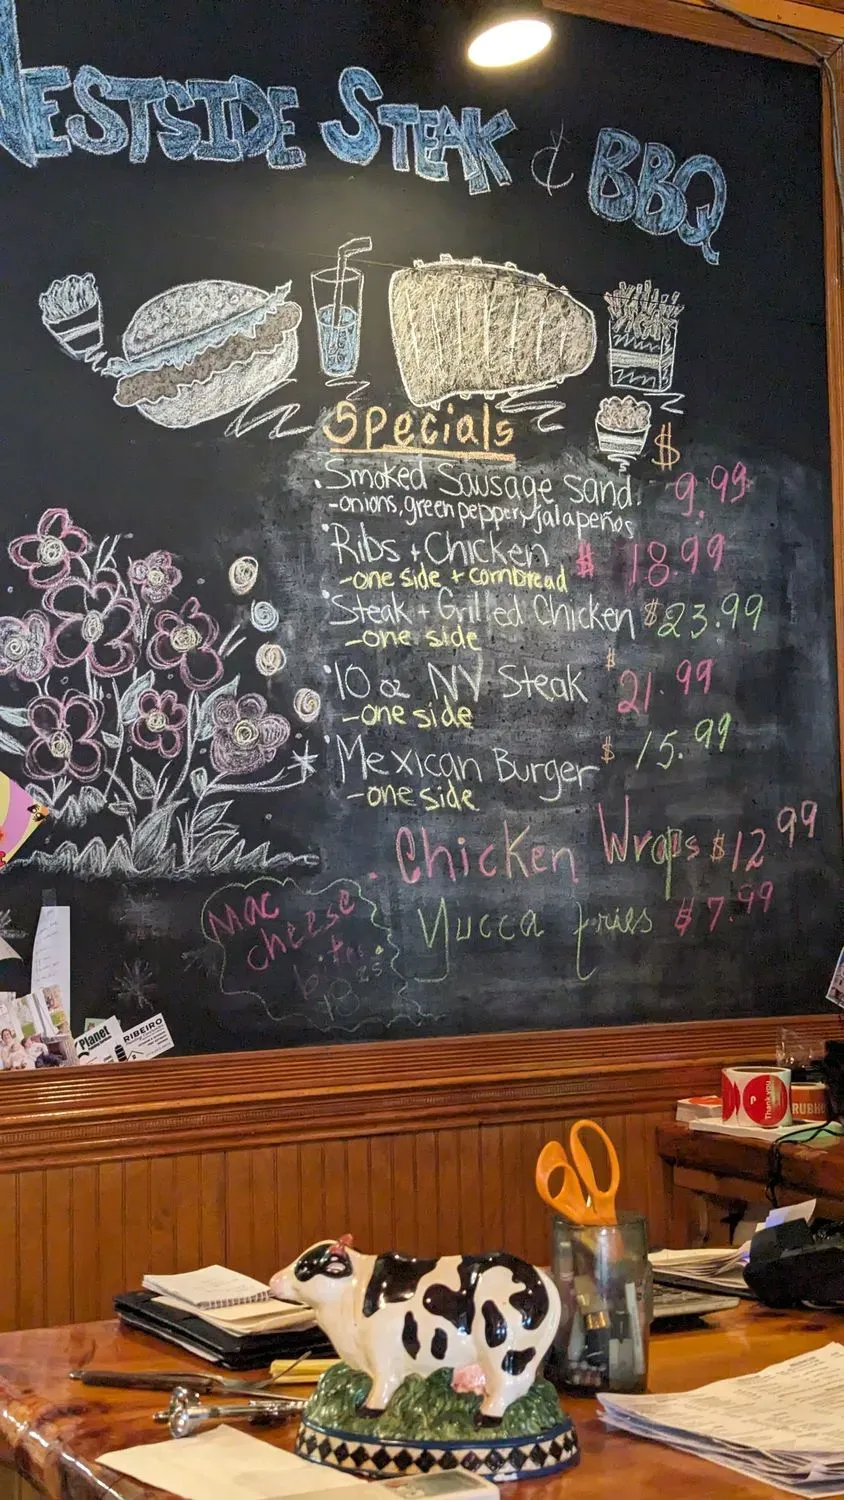 WESTSIDE STEAK & BBQ
Specials
$
. Smoked Sausage Sand. 9.99
-onions, green peppers, jalapeños
· Ribs + Chicken $ 18.99
-one side + cornbread
· Steak + Grilled Chicken $23.99
-one side
· 10 oz NY Steak $21.99
-one side
· Mexican Burger $15.99
-one side
. Chicken Wraps $12.99
Yucca fries $7.99
Mac
cheese
bites
Planet
RIBEIRO
Thank you